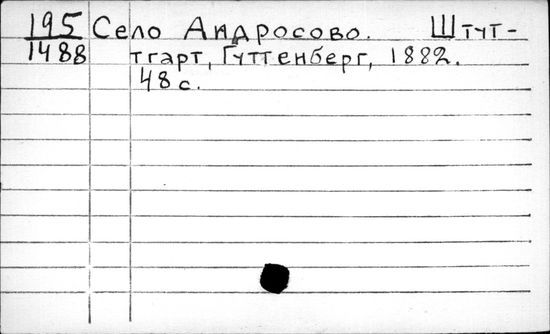 195 Село Андросово. Штут-
1488 тгарт, Гуттенберг, 1882.
48 с.